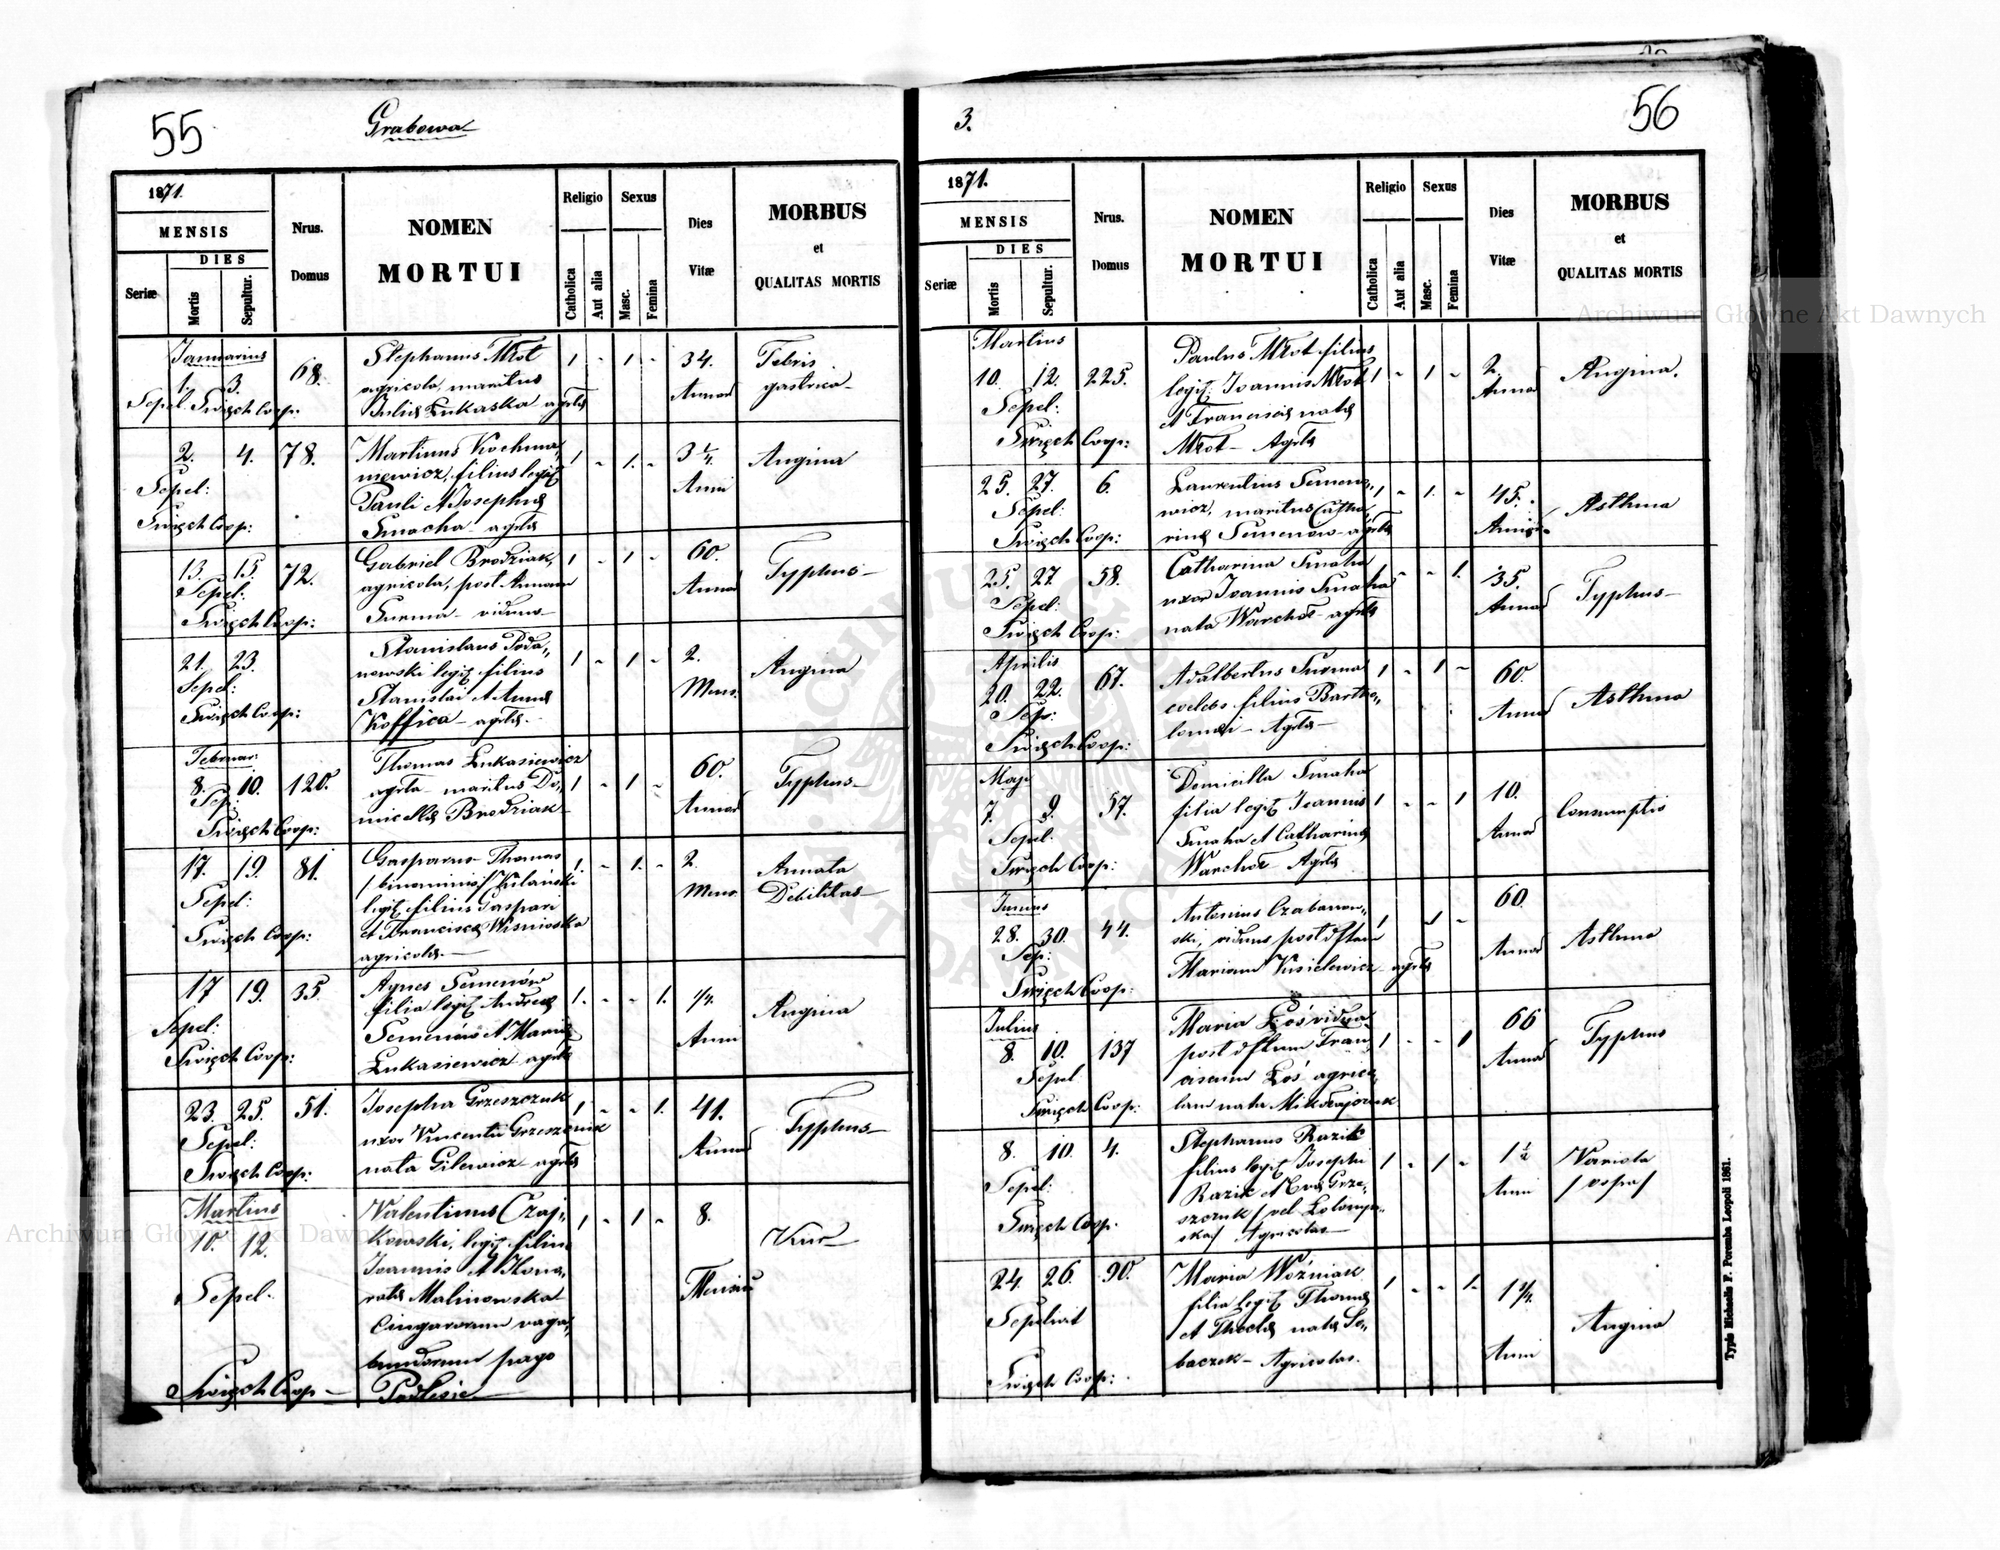 55
Grabowa
1871.
MENSIS
DIES
Seriæ
Mortis
Sepultur.
Nrus.
Domus
NOMEN
MORTUI
Religio
Catholica
Aut alia
Sexus
Masc.
Femina
Dies
Vitæ
MORBUS
et
QUALITAS MORTIS
Januarius
1. 3. 68.
Sepel. Święch Coop:
Stephanus Młot
agricola, maritus
Juliæ Łukaska agrlæ
1 - 1 -
34.
Annor
Febris
gastrica
2. 4. 78.
Sepel:
Święch Coop:
Martinus Kochma„
niewicz, filius legit
Pauli et Josephæ
Smacha agrlæ
1 - 1. -
3 1/4.
Anni
Angina
13. 15. 72.
Sepel:
Święch Coop:
Gabriel Brodziak,
agricola, post Annam
Surma viduus
1 - 1 -
60.
Annor
Typhus
21. 23.
Sepel:
Święch Coop:
Stanislaus Poda„
nowski legit. filius
Stanislai et Annæ
Koffica agrlæ.
1 - 1 -
2.
Mens.
Angina
Februar.
8. 10. 120.
Sep:
Święch Coop:
Thomas Łukasiewicz
agrla maritus Do„
micellæ Brodziak
1 - 1 -
60.
Annor
Typhus
17. 19. 81.
Sepel:
Święch Coop:
Gasparus Thomas
/binominis/ Kulański
legit. filius Gaspari
et Franciscæ Wiśnioska
agricolæ.
1. - 1. -
2.
Mens.
Annata
Debilitas
17 19. 35
Sepel:
Święch Coop:
Agnes Semenów
filia legit. Andreæ
Semenów et Mariæ
Łukasiewicz agrlæ
1. - - 1.
1/4.
Anni
Angina
23. 25. 51.
Sepel:
Święch Coop:
Josepha Grzeszczuk
uxor Vincentii Grzeszczuk
nata Gilewicz agrlæ
1 - - 1.
41.
Annor
Typhus
Martius
10. 12.
Sepel.
Święch Coop
Valentinus Czaj„
kowski, legit. filius
Joannis et Hono„
ratæ Malinowska
Cingarorum vaga„
bundorum pago
Podlesie
1 - 1 -
8.
Mensiu
3.
56
1871.
MENSIS
DIES
Seriæ
Mortis
Sepultur.
Nrus.
Domus
NOMEN
MORTUI
Religio
Catholica
Aut alia
Sexus
Masc.
Femina
Dies
Vitæ
MORBUS
et
QUALITAS MORTIS
Martius
10. 12. 225.
Sepel:
Święch Coop:
Paulus Młot filius
legit. Joannis Młot
et Franciscæ natæ
Młot Agrlæ
1 - 1 -
2.
Annor
Angina.
25. 27. 6.
Sepel:
Święch Coop:
Laurentius Semeno„
wicz, maritus Catha„
rinæ Semenow agrlæ
1 - 1. -
45.
Annor
Asthma
25. 27 58.
Sepel:
Święch Coop:
Catharina Smaha
uxor Joannis Smaha
nata Warchoł agrlæ
- - 1.
35.
Annor
Typhus
Aprilis
20. 22. 67.
Sep:
Święch Coop:
Adalbertus Surma
celebs filius Bartho„
lomæi Agrlæ
1 - 1 -
60.
Annor
Asthma
Maj
7. 9. 57.
Sepel:
Święch Coop:
Domicilla Smaha
filia legit. Joannis
Smaha et Catharinæ
Warchoł Agrlæ
1 - - 1
10.
Annor
Consumptio
Junius
28. 30. 44.
Sep:
Święch Coop:
Antonius Czabanow„
ski, viduus post dftam
Mariam Kisielewicz agrlæ
1 - 1 -
60.
Annor
Asthma
Julius
8. 10. 137
Sepel
Święch Coop:
Maria Łoś vidua
post dftum Fran„
ciscum Łoś agrico„
lam nata Mikołajczuk
1 - - 1
66
Annor
Typhus
8. 10. 4.
Sepel:
Święch Coop.
Stephanus Razik
filius legit. Josephi
Razik et Evæ Grze„
szczuk /vel Łotomyj„
ska/ Agricolas
1 - 1 -
1 1/2
Anni
Variola
/ospa/
24 26. 90.
Sepelivit
Święch Coop:
Maria Woźniak
filia legit. Thomæ
et Theclæ natæ So„
baczek Agricolas.
1 - - 1.
1 1/4.
Anni
Angina
Typis Michaelis F. Poremba Leopoli 1861.
Archiwum Główne Akt Dawnych
Archiwum Główne Akt Dawnych